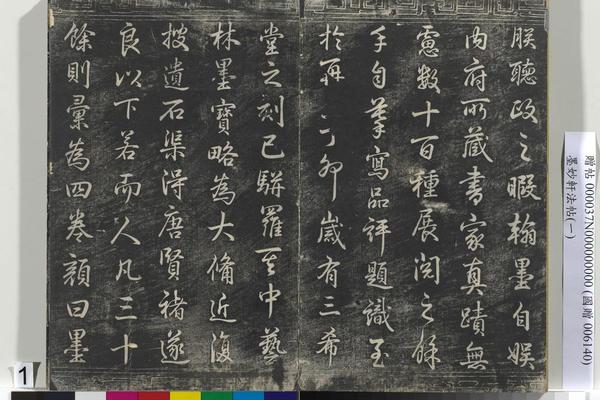 朕聽政之暇翰墨自娛
內府所藏書家真蹟無
慮數十百種展閱之餘
手自摹寫品評題識至
於再丁卯歲有三希
堂之刻已駢羅其中藝
林墨寶略為大備近復
搜遺石渠得唐賢褚遂
良以下若而人凡三十
餘則彙為四卷顏曰墨
贈帖 000037N000000000 (國贈 006140)
墨妙軒法帖(一)
1